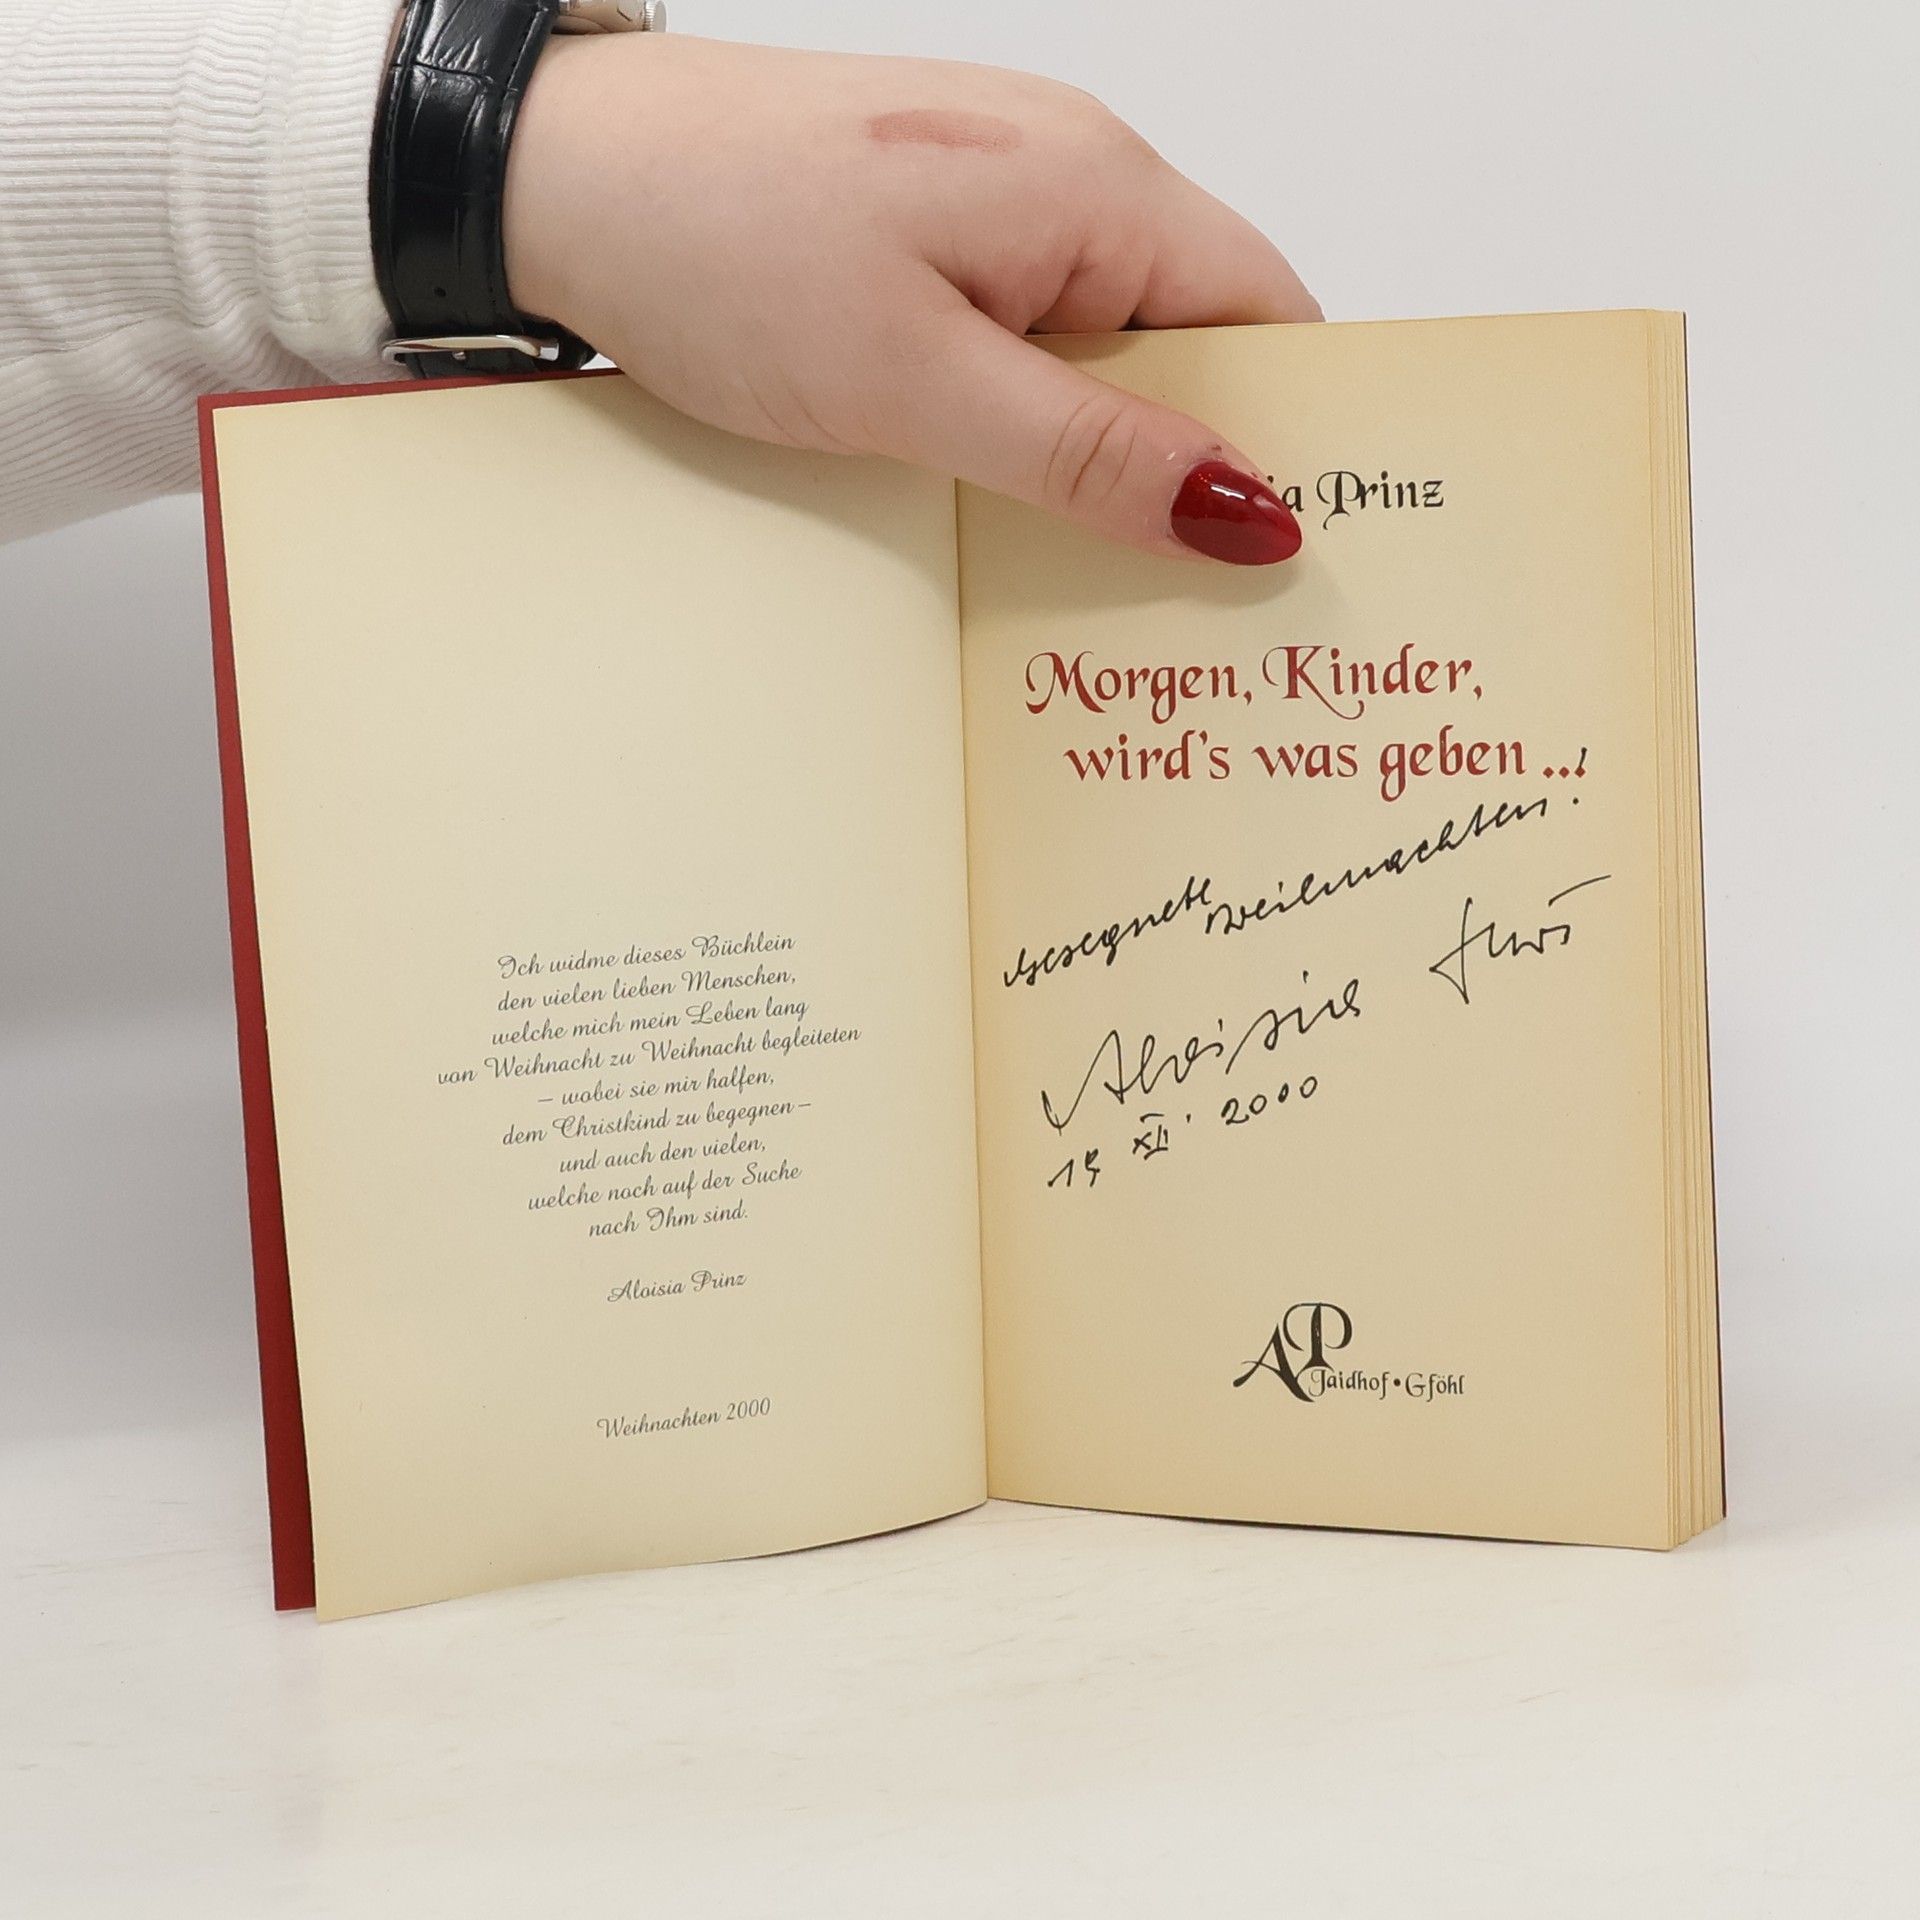 Ich widme dieses Büchlein
den vielen lieben Menschen,
welche mich mein Leben lang
von Weihnacht zu Weihnacht begleiteten
– wobei sie mir halfen,
dem Christkind zu begegnen –
und auch den vielen,
welche noch auf der Suche
nach Ihm sind.
Aloisia Prinz
Weihnachten 2000
Prinz
Morgen, Kinder,
wird's was geben ...!
Gesegnete Weihnachten!
Aloisia
XII. 2000
AP
Jaidhof • Gföhl